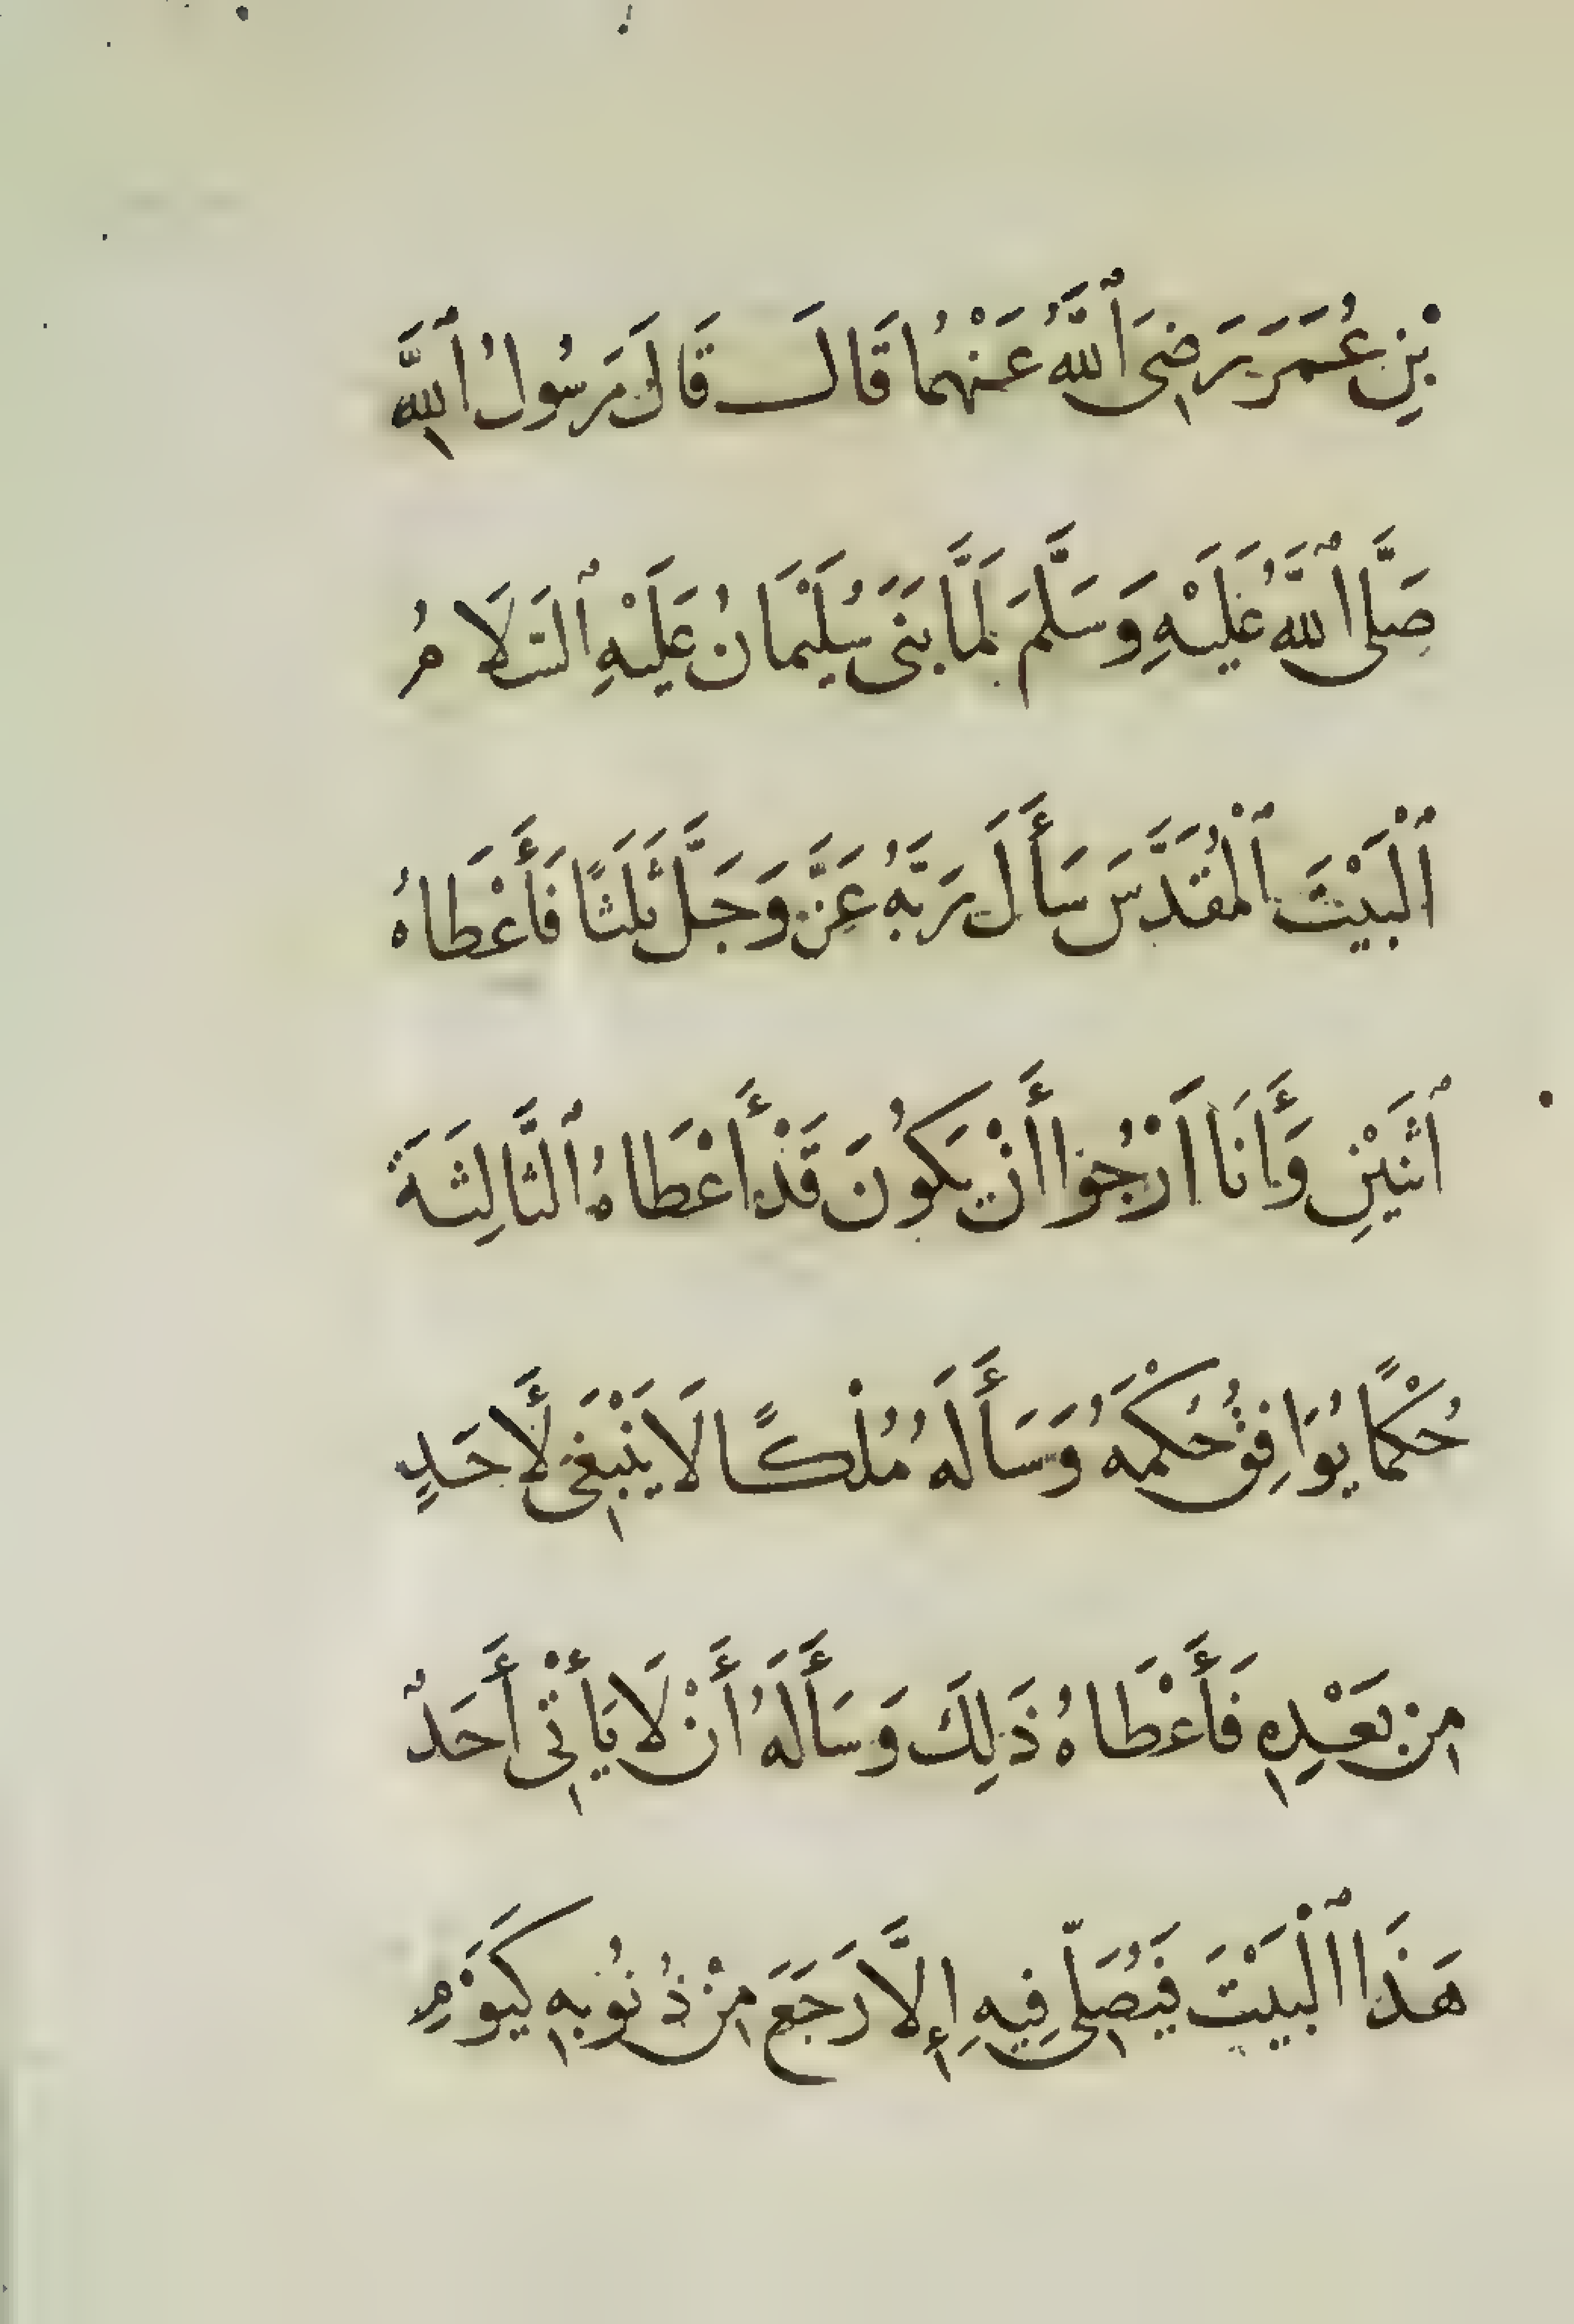 بْنِ عُمَرَ رَضِىَ ٱللَّهُ عَنْهُمَا قَالَ قَالَ رَسُولُ ٱللَّهِ
صَلَّى ٱللَّهُ عَلَيْهِ وَسَلَّمَ لَمَّا بَنَى سُلَيْمَانُ عَلَيْهِ ٱلسَّلَامُ
ٱلْبَيْتَ ٱلْمُقَدَّسَ سَأَلَ رَبَّهُ عَزَّ وَجَلَّ ثَلَثًا فَأَعْطَاهُ
ٱثْنَيْنِ وَأَنَا أَرْجُوا أَنْ يَكُونَ قَدْ أَعْطَاهُ ٱلثَّالِثَةَ
حُكْمًا يُوَافِقُ حُكْمَهُ وَسَأَلَهُ مُلْكًا لَا يَنْبَغِى لِأَحَدٍ
مِن بَعْدِهِ فَأَعْطَاهُ ذَلِكَ وَسَأَلَهُ أَنْ لَا يَأْتِى أَحَدٌ
هَذَا ٱلْبَيْتَ فَيُصَلِّى فِيهِ إِلَّا رَجَعَ مِنْ ذُنُوبِهِ كَيَوْمِ